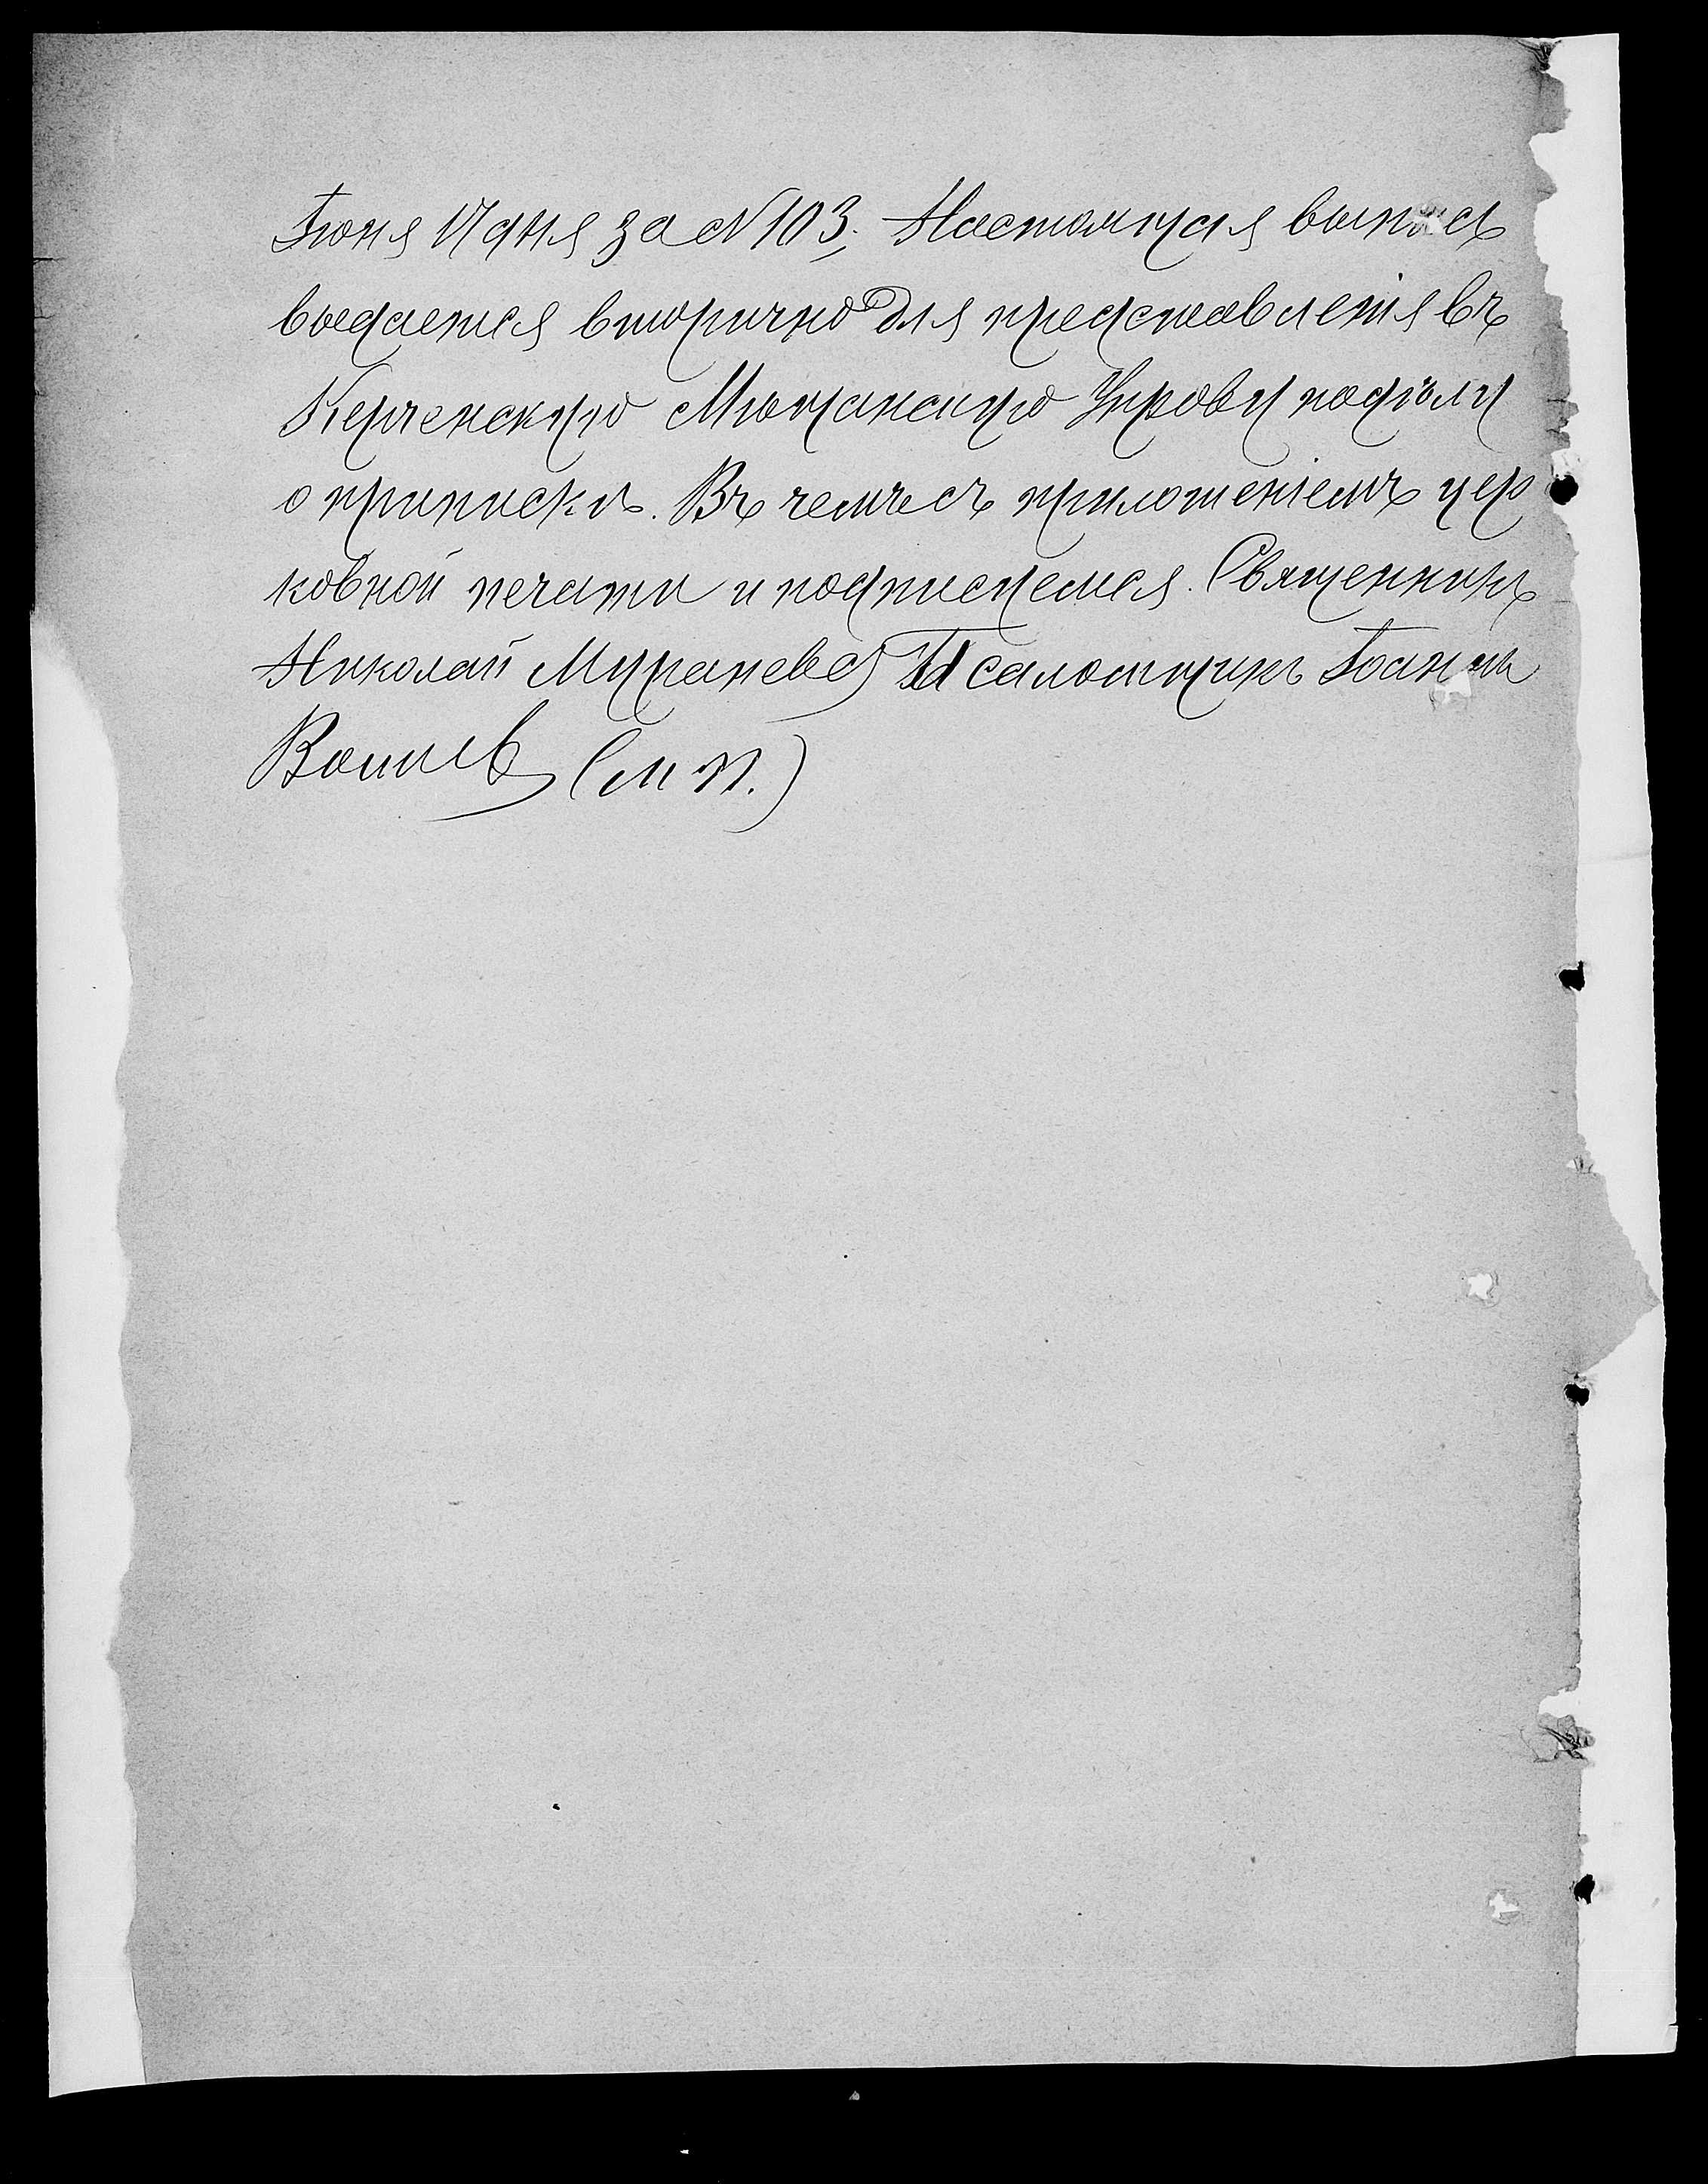 Іюня 17 дня за № 103. Настоящая выпись
выдается вторично для представленія въ
Керченскую Мѣщанскую Управу по дѣлу
о припискѣ. Въ чемъ съ приложеніемъ цер
ковной печати и подписуемся. Священникъ
Николай Псаломщикъ Іоаннъ
(М П.)